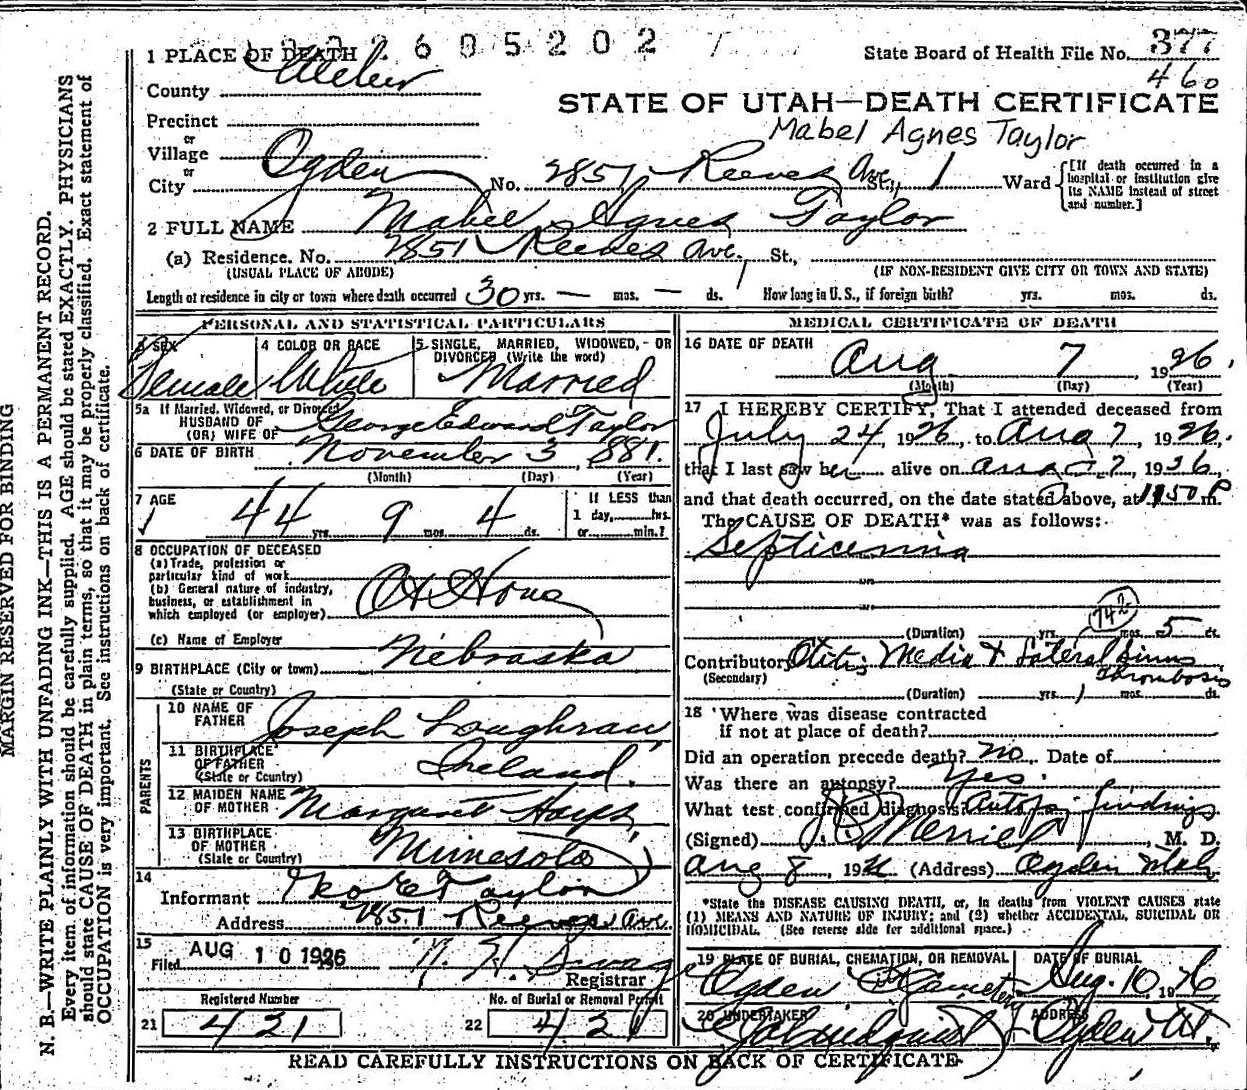 2 6 0 5 2 0 2
1 PLACE OF DEATH
State Board of Health File No. 377
460
County Weber
STATE OF UTAH—DEATH CERTIFICATE
Mabel Agnes Taylor
Precinct
or
Village
or
City Ogden No. 2851 Reeves Ave. St., 1 Ward
[If death occurred in a hospital or institution give its NAME instead of street and number.]
2 FULL NAME Mabel Agnes Taylor
(a) Residence. No. 2851 Reeves Ave. St.,
(USUAL PLACE OF ABODE) (IF NON-RESIDENT GIVE CITY OR TOWN AND STATE)
Length of residence in city or town where death occurred 30 yrs. — mos. — ds. How long in U. S., if foreign birth? yrs. mos. ds.
PERSONAL AND STATISTICAL PARTICULARS
3 SEX
Female
4 COLOR OR RACE
White
5 SINGLE, MARRIED, WIDOWED, OR
DIVORCED (Write the word)
Married
5a If Married, Widowed, or Divorced
HUSBAND OF
(OR) WIFE OF George Edward Taylor
6 DATE OF BIRTH November 3, 1881.
(Month) (Day) (Year)
7 AGE
44 yrs. 9 mos. 4 ds.
If LESS than
1 day, hrs.
or min.?
8 OCCUPATION OF DECEASED
(a) Trade, profession or
particular kind of work
(b) General nature of industry,
business, or establishment in
which employed (or employer)
At Home
(c) Name of Employer
9 BIRTHPLACE (City or town) Nebraska
(State or Country)
PARENTS
10 NAME OF
FATHER Joseph Loughran
11 BIRTHPLACE
OF FATHER
(State or Country) Ireland.
12 MAIDEN NAME
OF MOTHER Margaret Hays
13 BIRTHPLACE
OF MOTHER
(State or Country) Minnesota
14
Informant Geo E Taylor
Address 2851 Reeves Ave.
15
Filed AUG 10 1926
Registrar
Registered Number
21 421
No. of Burial or Removal Permit
22 421
MEDICAL CERTIFICATE OF DEATH
16 DATE OF DEATH
Aug 7, 1926.
(Month) (Day) (Year)
17 I HEREBY CERTIFY, That I attended deceased from
July 24, 1926, to Aug 7, 1926.
that I last saw her alive on Aug 7, 1926,
and that death occurred, on the date stated above, at 1150 P m.
The CAUSE OF DEATH* was as follows:
Septicemia
742
(Duration) yrs. mos. 5 ds.
Contributory Otitis Media & Lateral Sinus
Thrombosis
(Secondary)
(Duration) yrs. 1 mos. ds.
18 Where was disease contracted
if not at place of death?
Did an operation precede death? no Date of
Was there an autopsy? Yes.
What test confirmed diagnosis? Autopsy findings
(Signed) Merrill, M. D.
Aug 8, 1926 (Address) Ogden Utah
*State the DISEASE CAUSING DEATH, or, in deaths from VIOLENT CAUSES state
(1) MEANS AND NATURE OF INJURY; and (2) whether ACCIDENTAL, SUICIDAL OR
HOMICIDAL. (See reverse side for additional space.)
19 PLACE OF BURIAL, CREMATION, OR REMOVAL
Ogden Cemetery
DATE OF BURIAL
Aug. 10, 1926
20 UNDERTAKER
Lindquist
ADDRESS
Ogden Ut.
READ CAREFULLY INSTRUCTIONS ON BACK OF CERTIFICATE
MARGIN RESERVED FOR BINDING
N. B.—WRITE PLAINLY WITH UNFADING INK—THIS IS A PERMANENT RECORD.
Every item of information should be carefully supplied. AGE should be stated EXACTLY. PHYSICIANS
should state CAUSE OF DEATH in plain terms, so that it may be properly classified. Exact statement of
OCCUPATION is very important. See instructions on back of certificate.